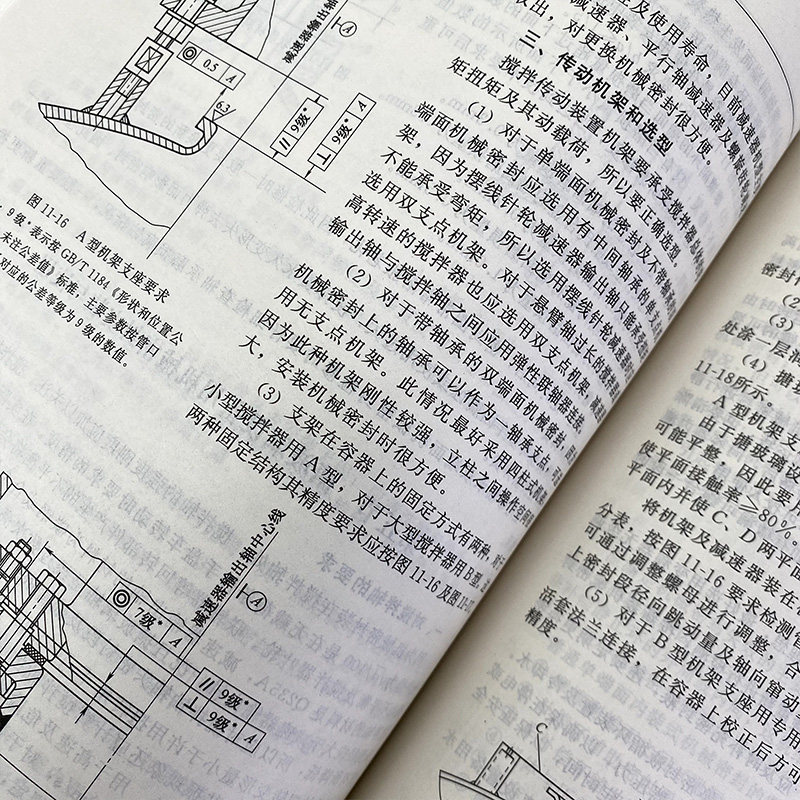 性及使用寿命，目前减速器机
减速器、平行轴减速器及
取出，对更换机械密封很方便。
三、传动机架和选型
搅拌传动装置机架要承受搅拌器
矩扭矩及其动载荷，所以要正确选型。
（1）对于单端面机械密封及不带轴承
端面机械密封应选用有中间轴承的单支点
架，因为摆线针轮减速器输出轴只能承受
不能承受弯矩，所以选用摆线针轮减速器
选用双支点机架。对于悬臂轴过长的
高转速的搅拌器也应选用双支点机架。
输出轴与搅拌轴之间应用弹性联轴器连接。
（2）对于带轴承的双端面机械密封，
机械密封上的轴承可以作为一轴承支点，
用无支点机架。此情况最好采用四柱式机架
因为此种机架刚性较强，立柱之间操作空间
大，安装机械密封时很方便。
（3）支架在容器上的固定方式有两种，对于
小型搅拌器用A型，对于大型搅拌器用B型。
两种固定结构其精度要求应按图11-16及图11-17
减速器输出轴
A
◎ 0.5 A
6.3
// 9级* A
⊥ 9级* A
图11-16 A型机架支座要求
9级*表示按GB/T 1184《形状和位置公
未注公差值》标准，主要参数按管口
对应的公差等级为9级的数值。
减速器输出轴中心线
A
◎ 7级* A
// 9级*
⊥ 9级* A
密封
（2）
（3）
处涂一层
（4）搪
11-18所示。
A型机架支
由于搪玻璃设
可能平整，因此要用
使平面接触率≥80%。
平面内并使C、D两平
将机架及减速器装在
分表，按图11-16要求检测
可通过调整螺母进行调整，合
上密封段径向跳动量及轴向窜动
（5）对于B型机架支座用专用
活套法兰连接，在容器上校正后方可
精度。
C